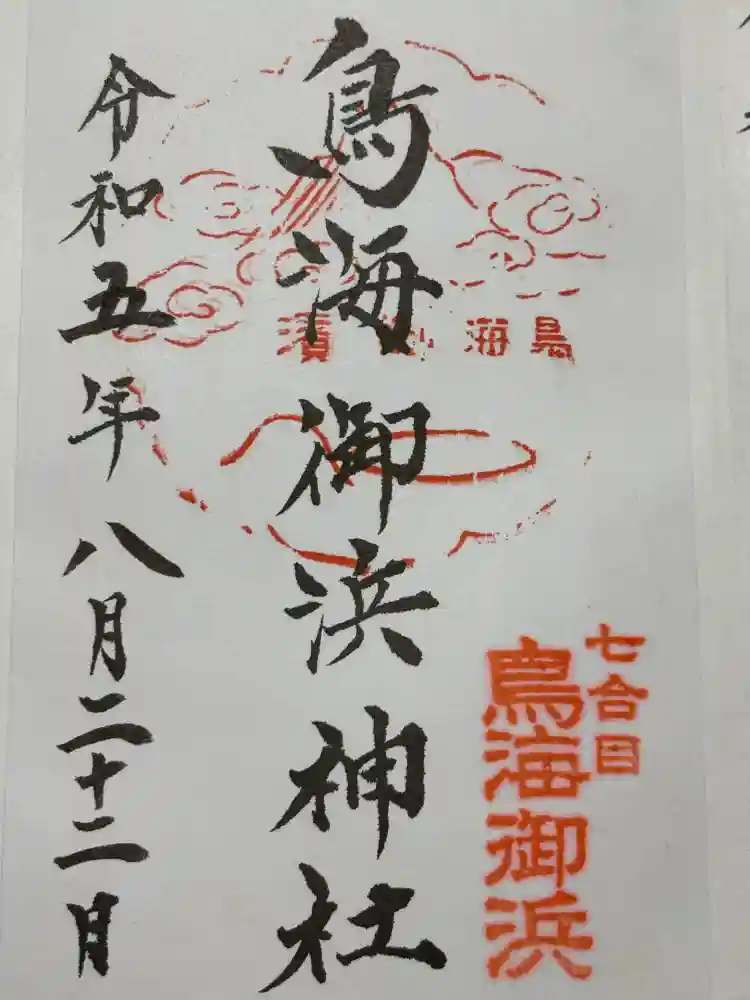 七合目
鳥海御浜
鳥海御濱
鳥海御浜神社
令和五年八月二十二月